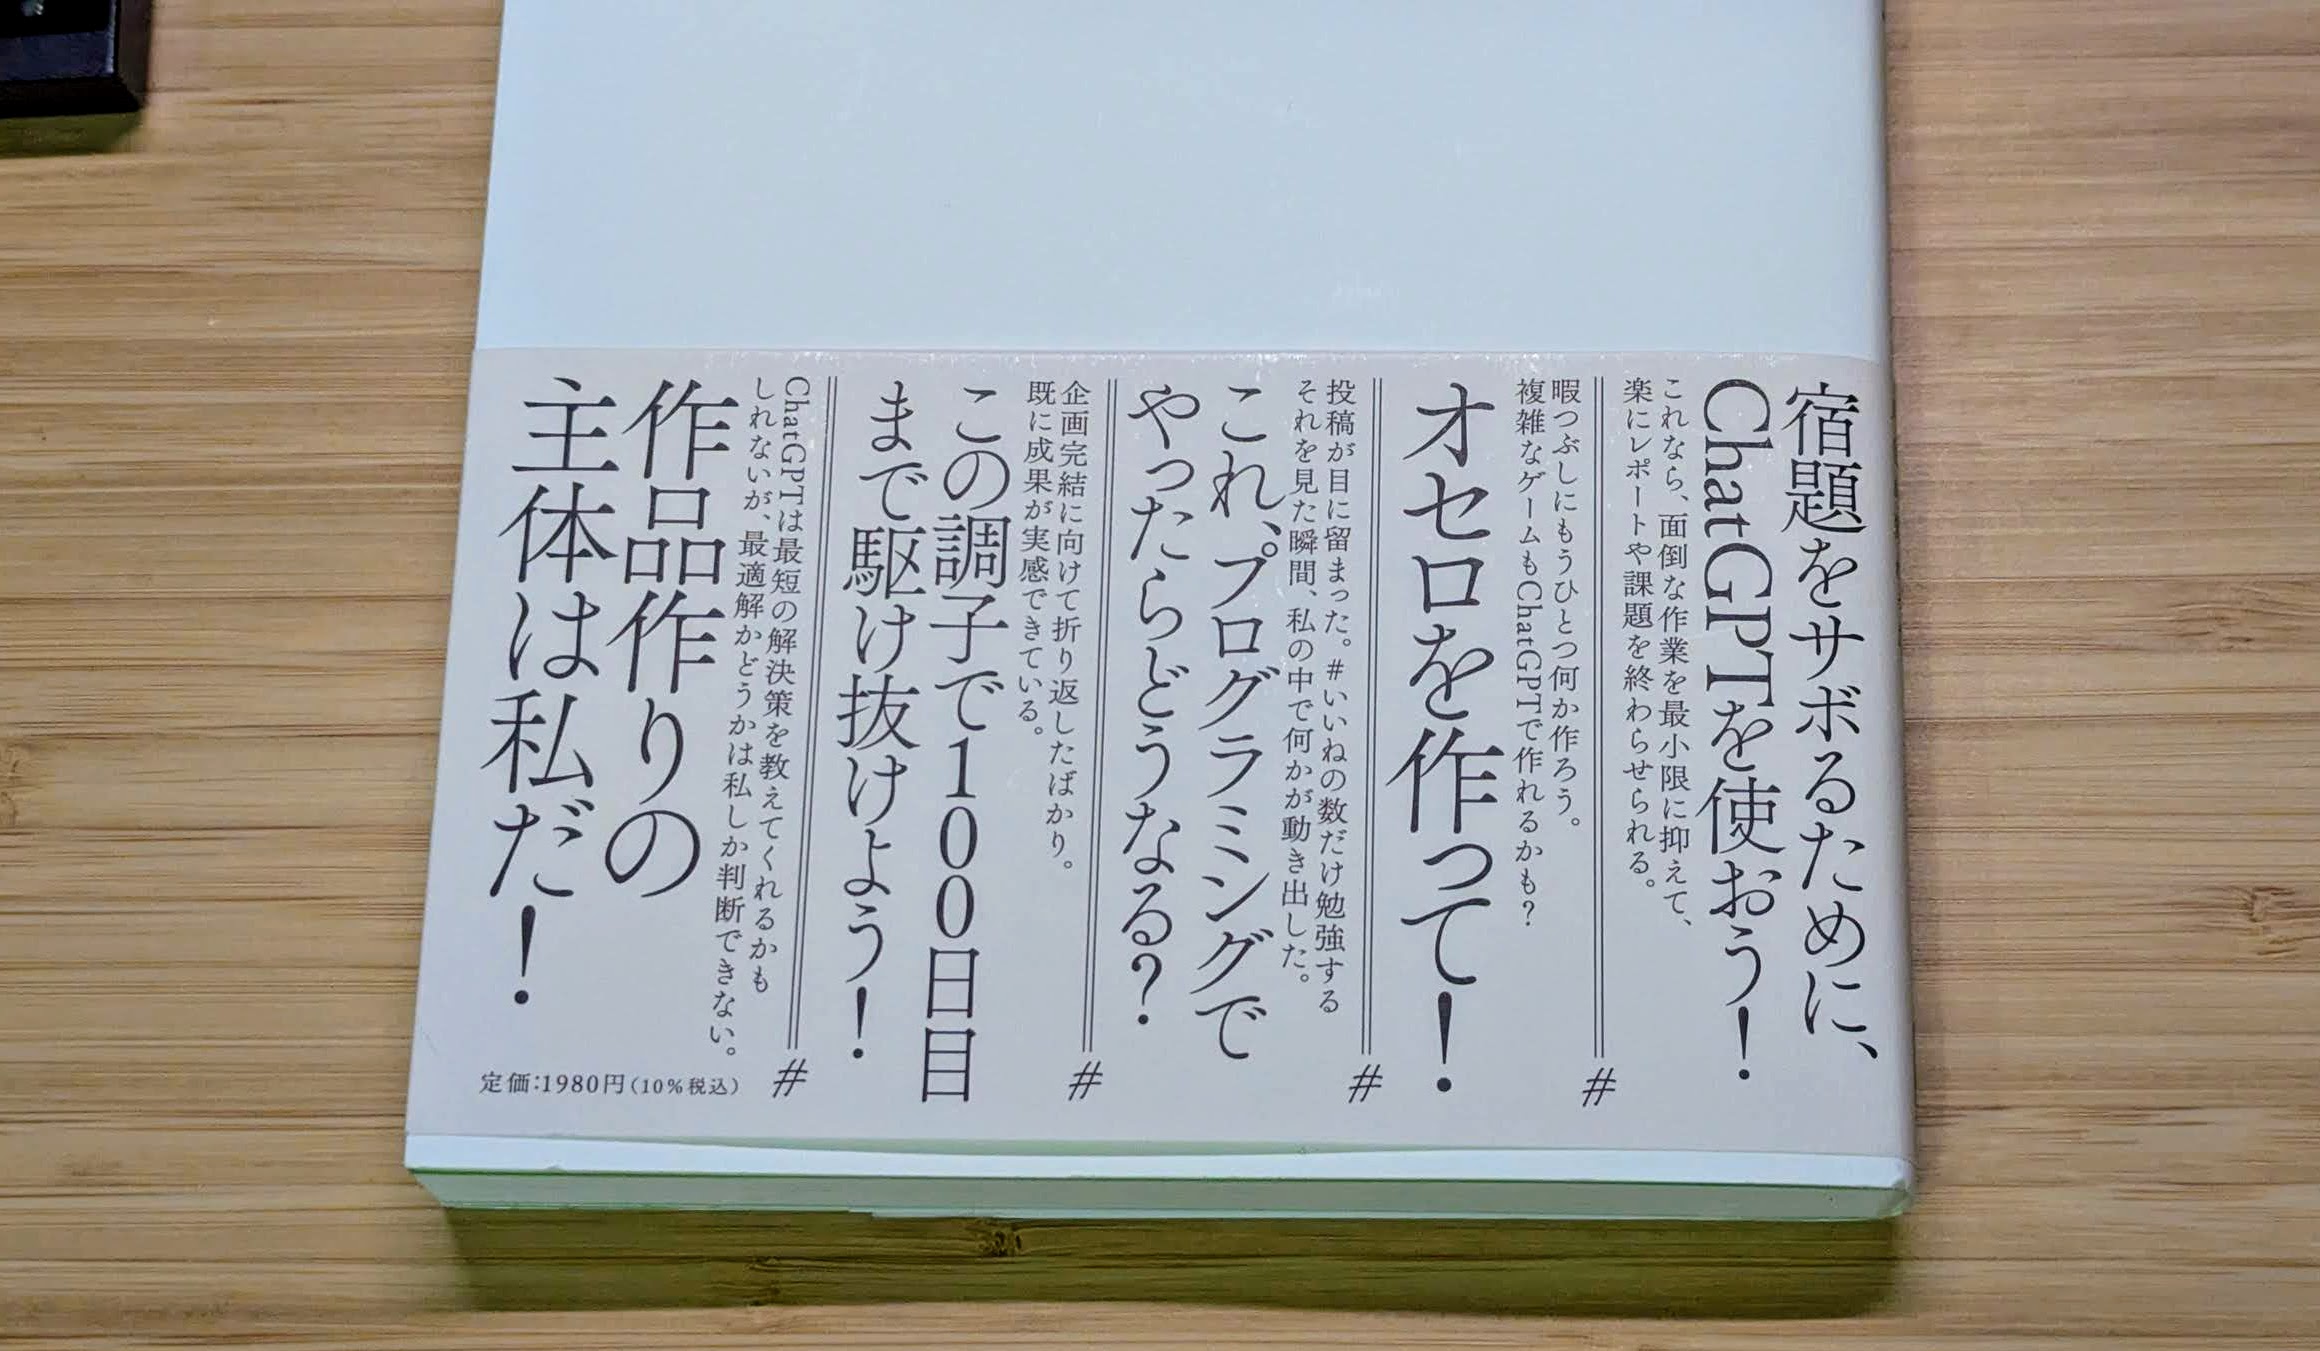 宿題をサボるために、
ChatGPTを使おう！
これなら、面倒な作業を最小限に抑えて、
楽にレポートや課題を終わらせられる。
#
暇つぶしにもうひとつ何か作ろう。
複雑なゲームもChatGPTで作れるかも？
オセロを作って！
#
投稿が目に留まった。#いいねの数だけ勉強する
それを見た瞬間、私の中で何かが動き出した。
これ、プログラミングで
やったらどうなる？
#
企画完結に向けて折り返したばかり。
既に成果が実感できている。
この調子で100日目
まで駆け抜けよう！
#
ChatGPTは最短の解決策を教えてくれるかも
しれないが、最適解かどうかは私しか判断できない。
作品作りの
主体は私だ！
定価：1980円（10％税込）